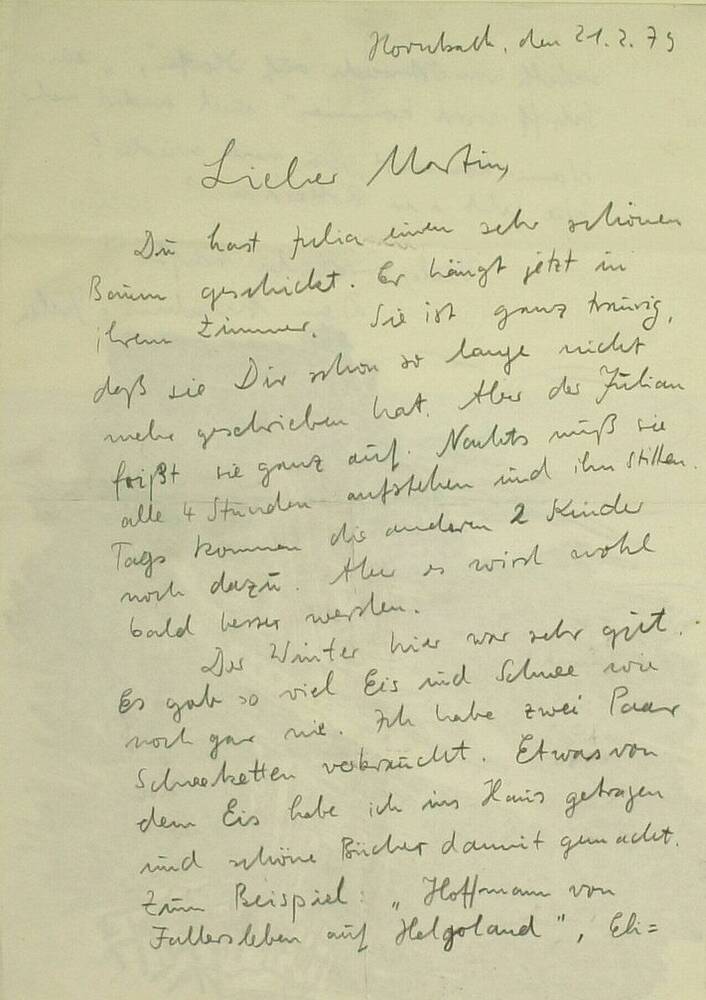 Hornbach, den 21.2.79
Lieber Martin,
Du hast Julia einen sehr schönen
Baum geschickt. Er hängt jetzt in
ihrem Zimmer. Sie ist ganz traurig,
daß sie Dir schon so lange nicht
mehr geschrieben hat. Aber der Julian
frißt sie ganz auf. Nachts muß sie
alle 4 Stunden aufstehen und ihn stillen.
Tags kommen die anderen 2 Kinder
noch dazu. Aber es wird wohl
bald besser werden.
Der Winter hier war sehr gut.
Es gab so viel Eis und Schnee wie
noch gar nie. Ich habe zwei Paar
Schneeketten verbraucht. Etwas von
dem Eis habe ich ins Haus getragen
und schöne Bücher damit gemacht.
Zum Beispiel: „Hoffmann von
Fallersleben auf Helgoland", Eli=